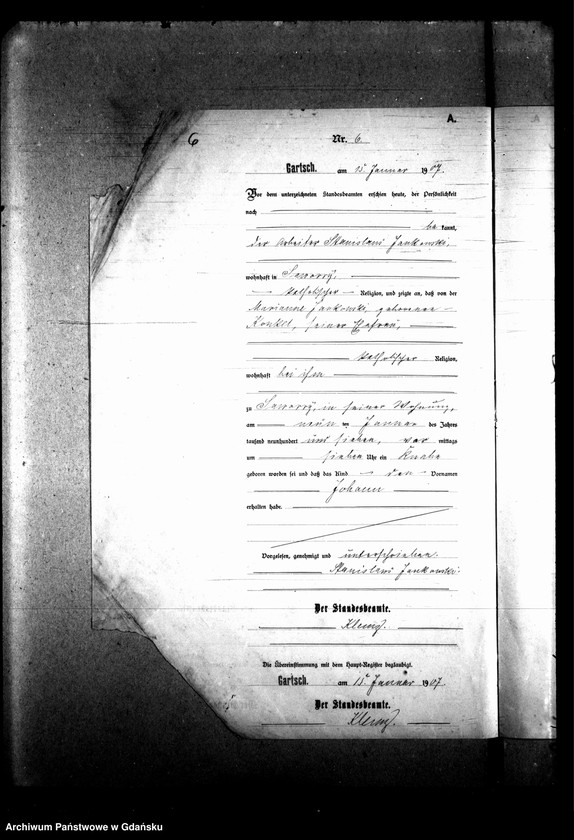 A.
6
Nr. 6
Gartsch. am 15. Januar 1907.
Vor dem unterzeichneten Standesbeamten erschien heute, der Persönlichkeit
nach
be kannt,
der Arbeiter Stanislaus Jankowski,
wohnhaft in Saworry,
katholischer Religion, und zeigte an, daß von der
Marianne Jankowski, geborenen
Konkel, seiner Ehefrau,
katholischer Religion,
wohnhaft bei ihm
zu Saworry, in seiner Wohnung,
am neun ten Januar des Jahres
tausend neunhundert und sieben, vor mittags
um sieben Uhr ein Knabe
geboren worden sei und daß das Kind den Vornamen
Johann
erhalten habe.
Vorgelesen, genehmigt und unterschrieben.
Stanislaus Jankowski.
Der Standesbeamte.
Die Übereinstimmung mit dem Haupt-Register beglaubigt.
Gartsch. am 15. Januar 1907.
Der Standesbeamte.
Archiwum Państwowe w Gdańsku